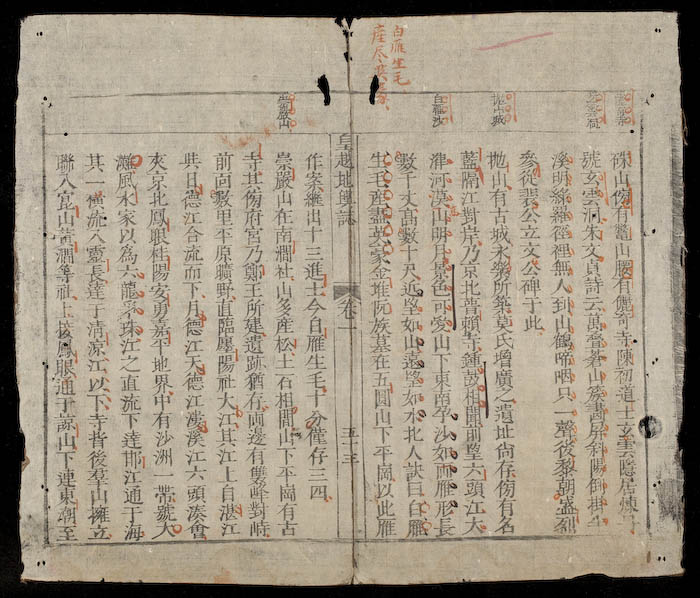 白雁生毛
產尽英豪
白雁沙
硃山傍有鼈山腰有奇寺陳初道士玄雲隱居煉
號玄雲洞朱文貞詩云萬疊蒼山簇畫屏斜陽倒掛半
溪明綠蘿徑裡無人到山鶴啼烟只一聲後黎朝盛烈
參從裴公立文公碑于此
拋山有古城永樂所築莫氏增廣之遺址尚存傍有名
藍隔江對岸乃京北普賴寺鍾鼓相聞前望六頭江大
灘河漠山明月景色可愛山下東南平沙如雨雁形長
數千丈高數十尺近望如山遠望如水北人訣曰白雁
生毛產盡英豪金堆阮族墓在五圓山下平崗以此雁
皇越地輿誌
卷一
五十三
崇嚴山
作案継出十三進士今白雁生毛十分僅存三四
崇嚴山在南澗社山多產松土石相間山下平崗有古
寺其傍府宮乃鄭王所建遺跡猶存兩邊有雙峰對峙
前面數里平原曠野直臨鄽陽社大江其江上自湛江
與日德江合流而下月德江天德江淒溪江六頭湊會
夾京北鳳眼桂陽安勇嘉平地界中有沙洲一帶號大
灘風水家以為六龍爭珠江之直流下達邯江通于海
其一橫流入靈長達于清涼江以下寺背後羣山擁立
聯入崑山黃澗等社上接鳳眼通于諒山下連東潮至